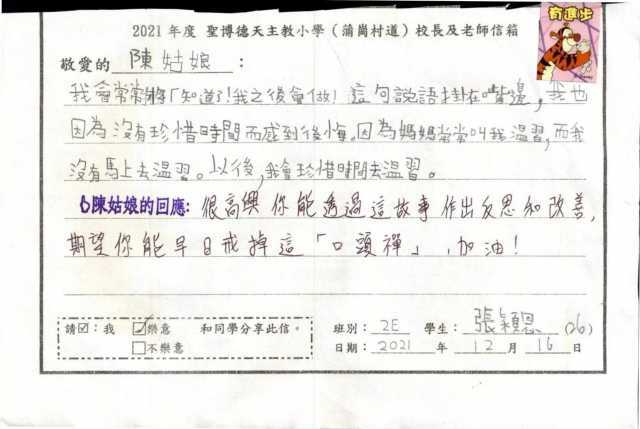 2021 年度 聖博德天主教小學（蒲崗村道）校長及老師信箱
有進步
敬愛的 陳姑娘 ：
我會常常將「知道了!我之後會做!這句說語掛在嘴邊，我也
因為沒有珍惜時間而感到後悔。因為媽媽常常叫我溫習，而我
沒有馬上去溫習。以後，我會珍惜時間去溫習。
陳姑娘的回應: 很高興你能透過這故事作出反思和改善，
期望你能早日戒掉這「口頭禪」，加油！
請☑：我 ☑樂意 和同學分享此信。
□不樂意
班別： 2E 學生： 張穎恩 (26)
日期： 2021 年 12 月 16 日